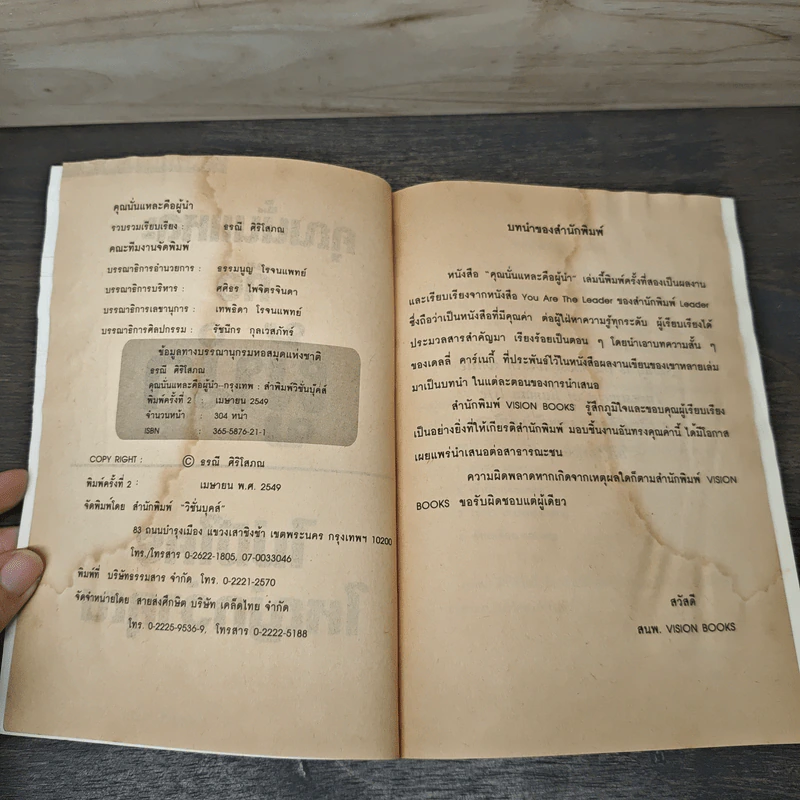 คุณนั่นแหละคือผู้นำ
รวบรวมเรียบเรียง : ธรณี ศิริโสภณ
คณะทีมงานจัดพิมพ์
บรรณาธิการอำนวยการ : ธรรมนูญ โรจนแพทย์
บรรณาธิการบริหาร : ศศิธร ไพจิตรจินดา
บรรณาธิการเลขานุการ : เทพธิดา โรจนแพทย์
บรรณาธิการศิลปกรรม : รัชนีกร กุลเวสภัทร์
ข้อมูลทางบรรณานุกรมหอสมุดแห่งชาติ
ธรณี ศิริโสภณ
คุณนั่นแหละคือผู้นำ-กรุงเทพ : สำพิมพ์วิชั่นบุ๊คส์
พิมพ์ครั้งที่ 2 : เมษายน 2549
จำนวนหน้า : 304 หน้า
ISBN : 365-5876-21-1
COPY RIGHT : © ธรณี ศิริโสภณ
พิมพ์ครั้งที่ 2 : เมษายน พ.ศ. 2549
จัดพิมพ์โดย สำนักพิมพ์ "วิชั่นบุคส์"
83 ถนนบำรุงเมือง แขวงเสาชิงช้า เขตพระนคร กรุงเทพฯ 10200
โทร./โทรสาร 0-2622-1805, 07-0033046
พิมพ์ที่ บริษัทธรรมสาร จำกัด โทร. 0-2221-2570
จัดจำหน่ายโดย สายส่งศึกษิต บริษัท เคล็ดไทย จำกัด
โทร. 0-2225-9536-9, โทรสาร 0-2222-5188
บทนำของสำนักพิมพ์
หนังสือ "คุณนั่นแหละคือผู้นำ" เล่มนี้พิมพ์ครั้งที่สองเป็นผลงาน
และเรียบเรียงจากหนังสือ You Are The Leader ของสำนักพิมพ์ Leader
ซึ่งถือว่าเป็นหนังสือที่มีคุณค่า ต่อผู้ใฝ่หาความรู้ทุกระดับ ผู้เรียบเรียงได้
ประมวลสารสำคัญมา เรียงร้อยเป็นตอน ๆ โดยนำเอาบทความสั้น ๆ
ของเดลลี่ คาร์เนกี้ ที่ประพันธ์ไว้ในหนังสือผลงานเขียนของเขาหลายเล่ม
มาเป็นบทนำ ในแต่ละตอนของการนำเสนอ
สำนักพิมพ์ VISION BOOKS รู้สึกภูมิใจและขอบคุณผู้เรียบเรียง
เป็นอย่างยิ่งที่ให้เกียรติสำนักพิมพ์ มอบชิ้นงานอันทรงคุณค่านี้ ได้มีโอกาส
เผยแพร่นำเสนอต่อสาธารณะชน
ความผิดพลาดหากเกิดจากเหตุผลใดก็ตามสำนักพิมพ์ VISION
BOOKS ขอรับผิดชอบแต่ผู้เดียว
สวัสดี
สนพ. VISION BOOKS